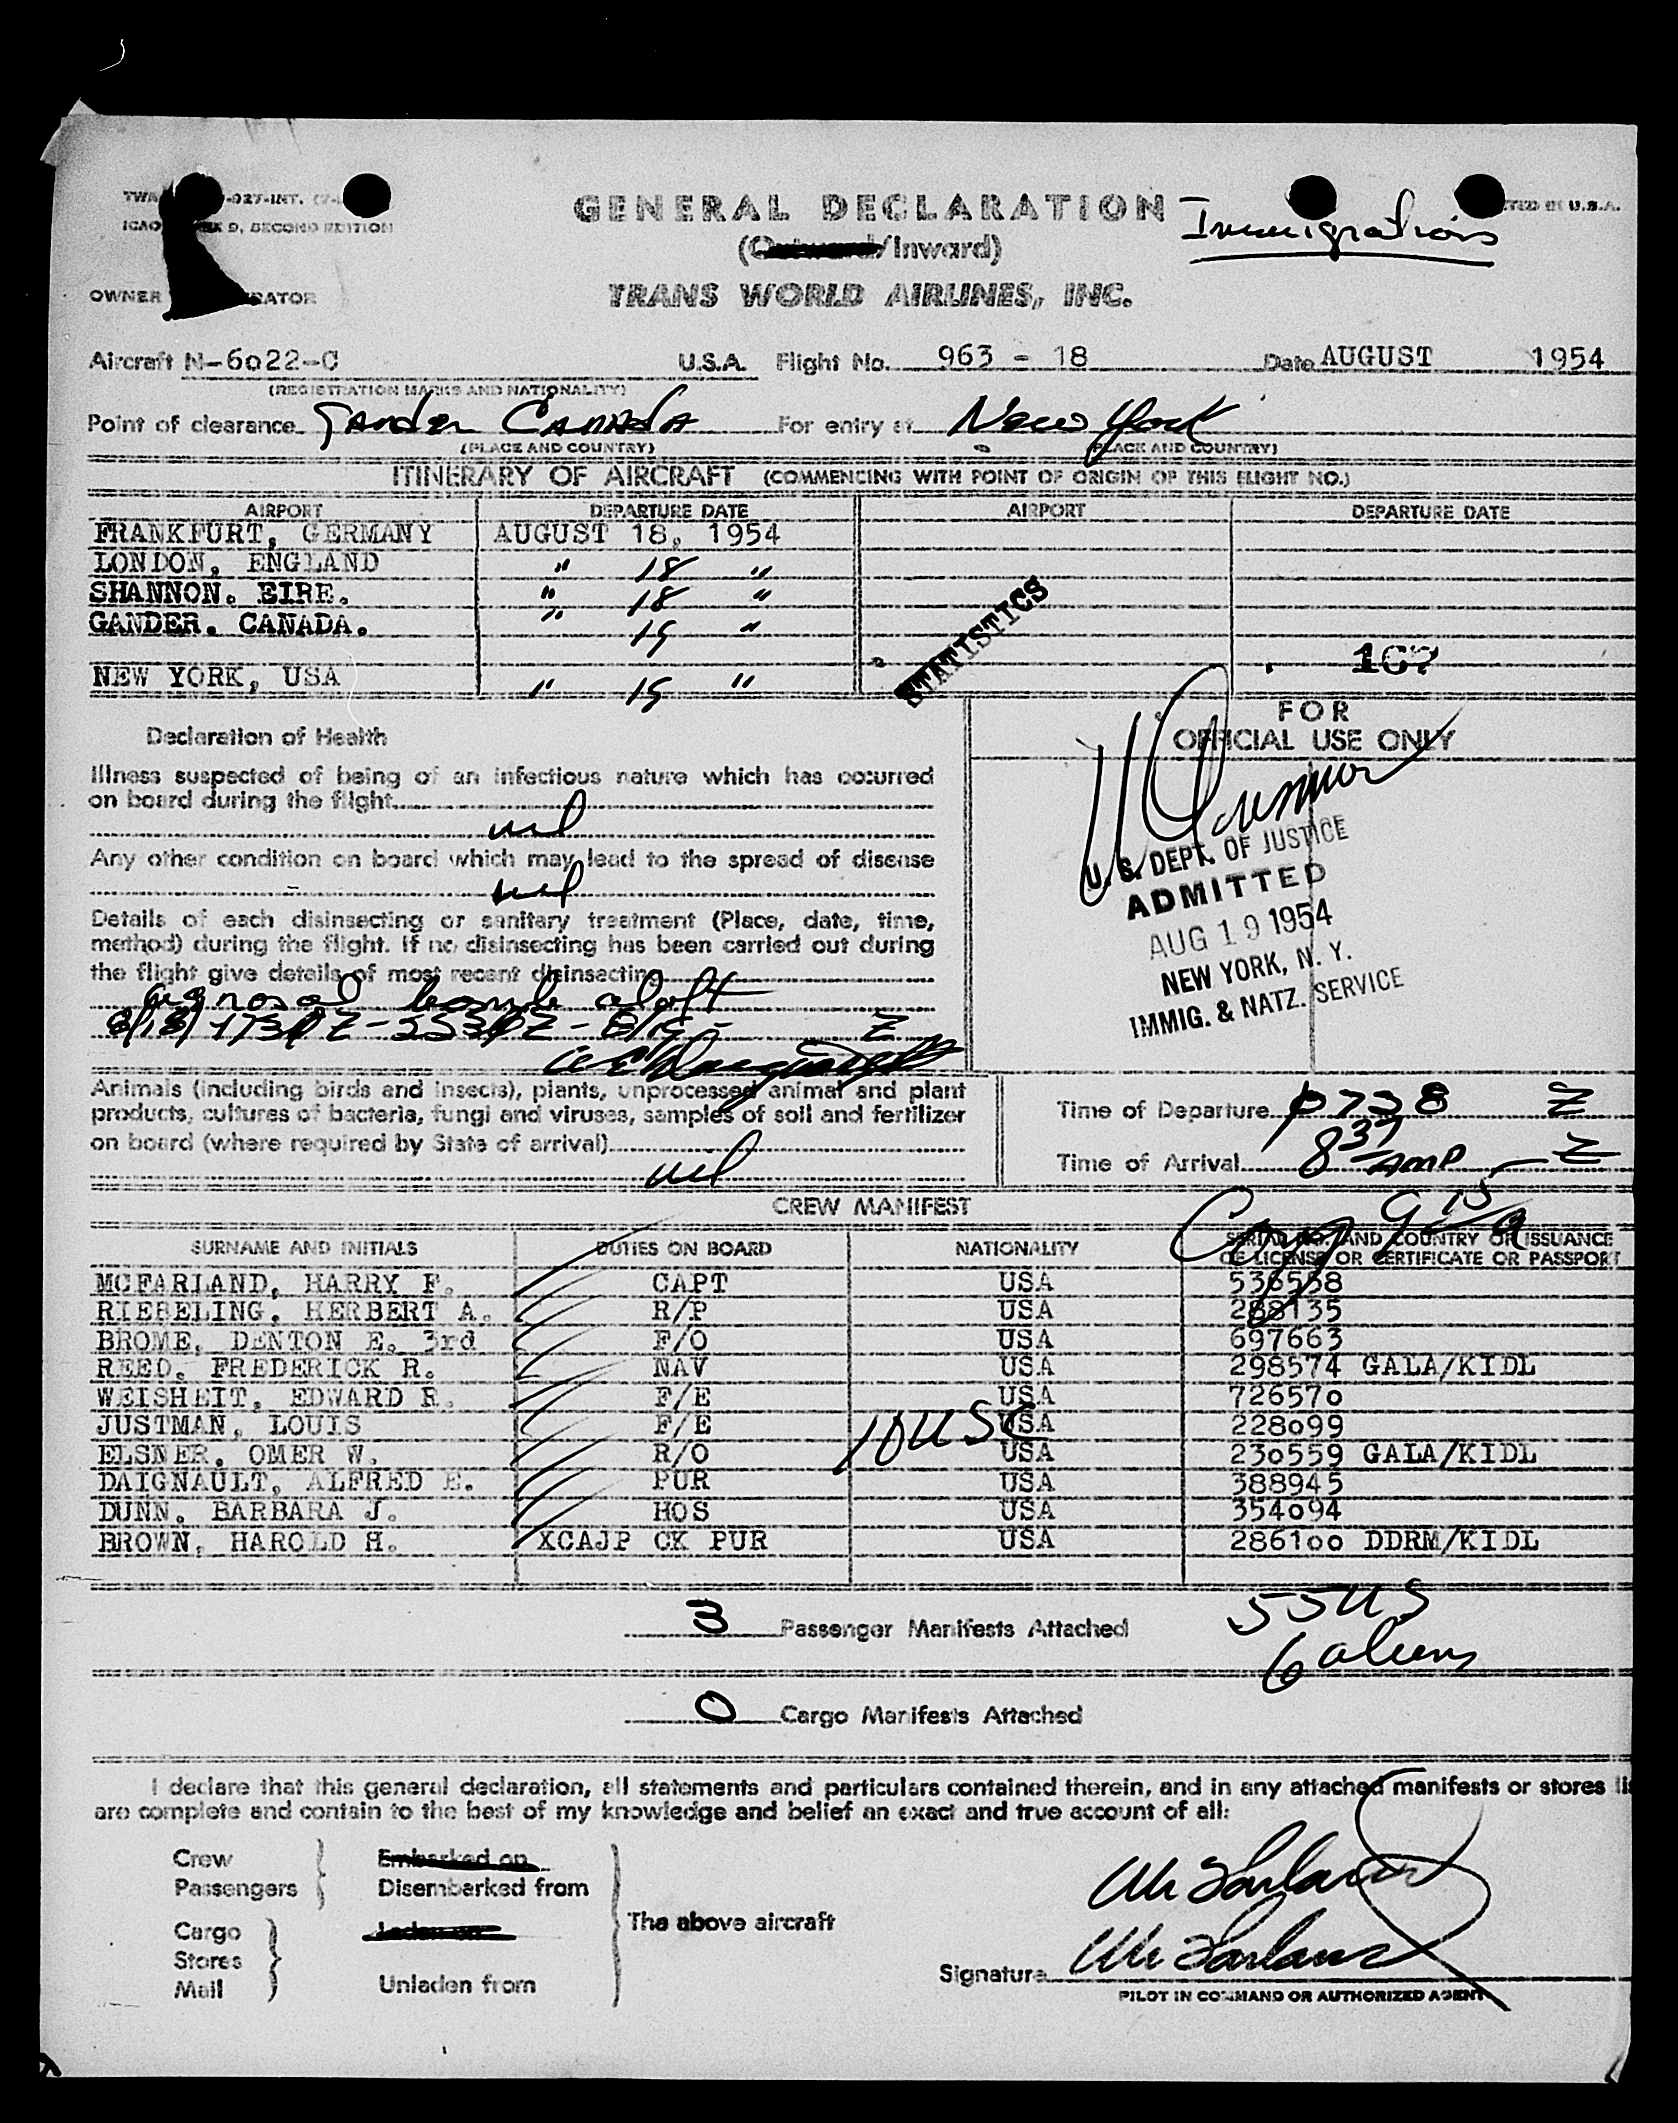 TWA -027-INT.
ICAO D, SECOND EDITION
GENERAL DECLARATION
(Outward/Inward)
Immigrations
TED IN U.S.A.
OWNER RATOR
TRANS WORLD AIRLINES, INC.
Aircraft N-6022-C U.S.A. Flight No. 963 - 18 Date AUGUST 1954
(REGISTRATION MARKS AND NATIONALITY)
Point of clearance Gander CANADA For entry at New York
(PLACE AND COUNTRY) (PLACE AND COUNTRY)
ITINERARY OF AIRCRAFT (COMMENCING WITH POINT OF ORIGIN OF THIS FLIGHT NO.)
AIRPORT DEPARTURE DATE AIRPORT DEPARTURE DATE
FRANKFURT, GERMANY AUGUST 18, 1954
LONDON, ENGLAND " 18 "
SHANNON. EIRE. " 18 "
GANDER. CANADA. " 19 "
STATISTICS
NEW YORK, USA " 19 "
FOR
OFFICIAL USE ONLY
Declaration of Health
Illness suspected of being of an infectious nature which has occurred
on board during the flight
nil
Any other condition on board which may lead to the spread of disease
nil
Details of each disinsecting or sanitary treatment (Place, date, time,
method) during the flight. If no disinsecting has been carried out during
the flight give details of most recent disinsecting
aerosol bomb aloft
U. S. DEPT. OF JUSTICE
ADMITTED
AUG 19 1954
NEW YORK, N. Y.
IMMIG. & NATZ. SERVICE
Animals (including birds and insects), plants, unprocessed animal and plant
products, cultures of bacteria, fungi and viruses, samples of soil and fertilizer
on board (where required by State of arrival)
nil
Time of Departure 0738 Z
Time of Arrival 8 37 AMP Z
CREW MANIFEST
SURNAME AND INITIALS DUTIES ON BOARD NATIONALITY SERIAL NO. AND COUNTRY OF ISSUANCE
OF LICENSE OR CERTIFICATE OR PASSPORT
MCFARLAND, HARRY F. CAPT USA 536558
RIEBELING, HERBERT A. R/P USA 288135
BROME, DENTON E. 3rd F/O USA 697663
REED, FREDERICK R. NAV USA 298574 GALA/KIDL
WEISHEIT, EDWARD R. F/E USA 726570
JUSTMAN, LOUIS F/E USA 228099
10 USC
ELSNER, OMER W. R/O USA 230559 GALA/KIDL
DAIGNAULT, ALFRED E. PUR USA 388945
DUNN, BARBARA J. HOS USA 354094
BROWN, HAROLD H. XCAJP CK PUR USA 286100 DDRM/KIDL
3 Passenger Manifests Attached
55 US
6 aliens
0 Cargo Manifests Attached
I declare that this general declaration, all statements and particulars contained therein, and in any attached manifests or stores li
are complete and contain to the best of my knowledge and belief an exact and true account of all:
Crew Embarked on
Passengers Disembarked from
The above aircraft
Cargo Laden on
Stores
Mail Unladen from
McFarland
McFarland
Signature
PILOT IN COMMAND OR AUTHORIZED AGENT